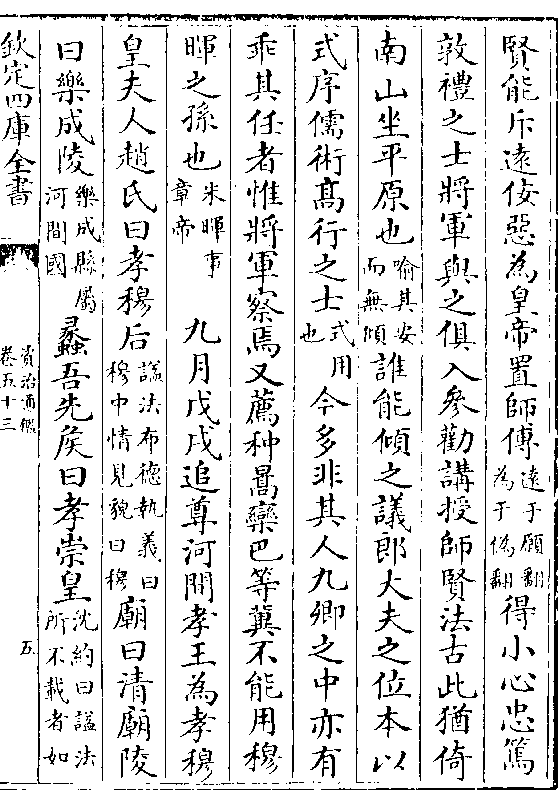 賢能斥遠佞惡為皇帝置師傅遠于願翻為于偽翻得小心忠篤
敦禮之士將軍與之俱入參勸講授師賢法古此猶倚
南山坐平原也喻其安而無傾誰能傾之議郎大夫之位本以
式序儒術高行之士式用也今多非其人九卿之中亦有
乖其任者惟將軍察焉又薦种暠欒巴等冀不能用穆
暉之孫也朱暉事章帝九月戊戌追尊河間孝王為孝穆
皇夫人趙氏曰孝穆后諡法布德執義曰穆中情見貌曰穆廟曰清廟陵
曰樂成陵樂成縣屬河間國蠡吾先矦曰孝崇皇沈約曰諡法所不載者如
欽定四庫全書
資治通鑑
卷五十三
五